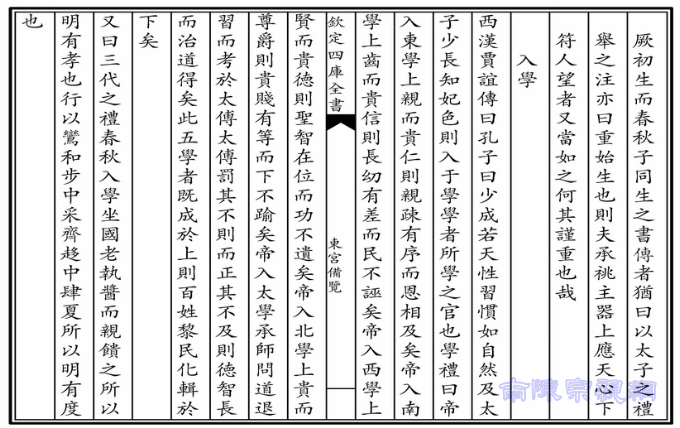 厥初生而春秋子同生之書傳者猶曰以太子之禮
舉之注亦曰重始生也則夫承祧主器上應天心下
符人望者又當如之何其謹重也哉
入學
西漢賈誼傳曰孔子曰少成若天性習慣如自然及太
子少長知妃色則入于學學者所學之官也學禮曰帝
入東學上親而貴仁則親疎有序而恩相及矣帝入南
學上齒而貴信則長幼有差而民不誣矣帝入西學上
欽定四庫全書
東宮備覽
賢而貴德則聖智在位而功不遺矣帝入北學上貴而
尊爵則貴賤有等而下不踰矣帝入太學承師問道退
習而考於太傅太傅罰其不則而正其不及則德智長
而治道得矣此五學者既成於上則百姓黎民化輯於
下矣
又曰三代之禮春秋入學坐國老執醬而親饋之所以
明有孝也行以鸞和步中采齊趍中肆夏所以明有度
也
南陳宗親網